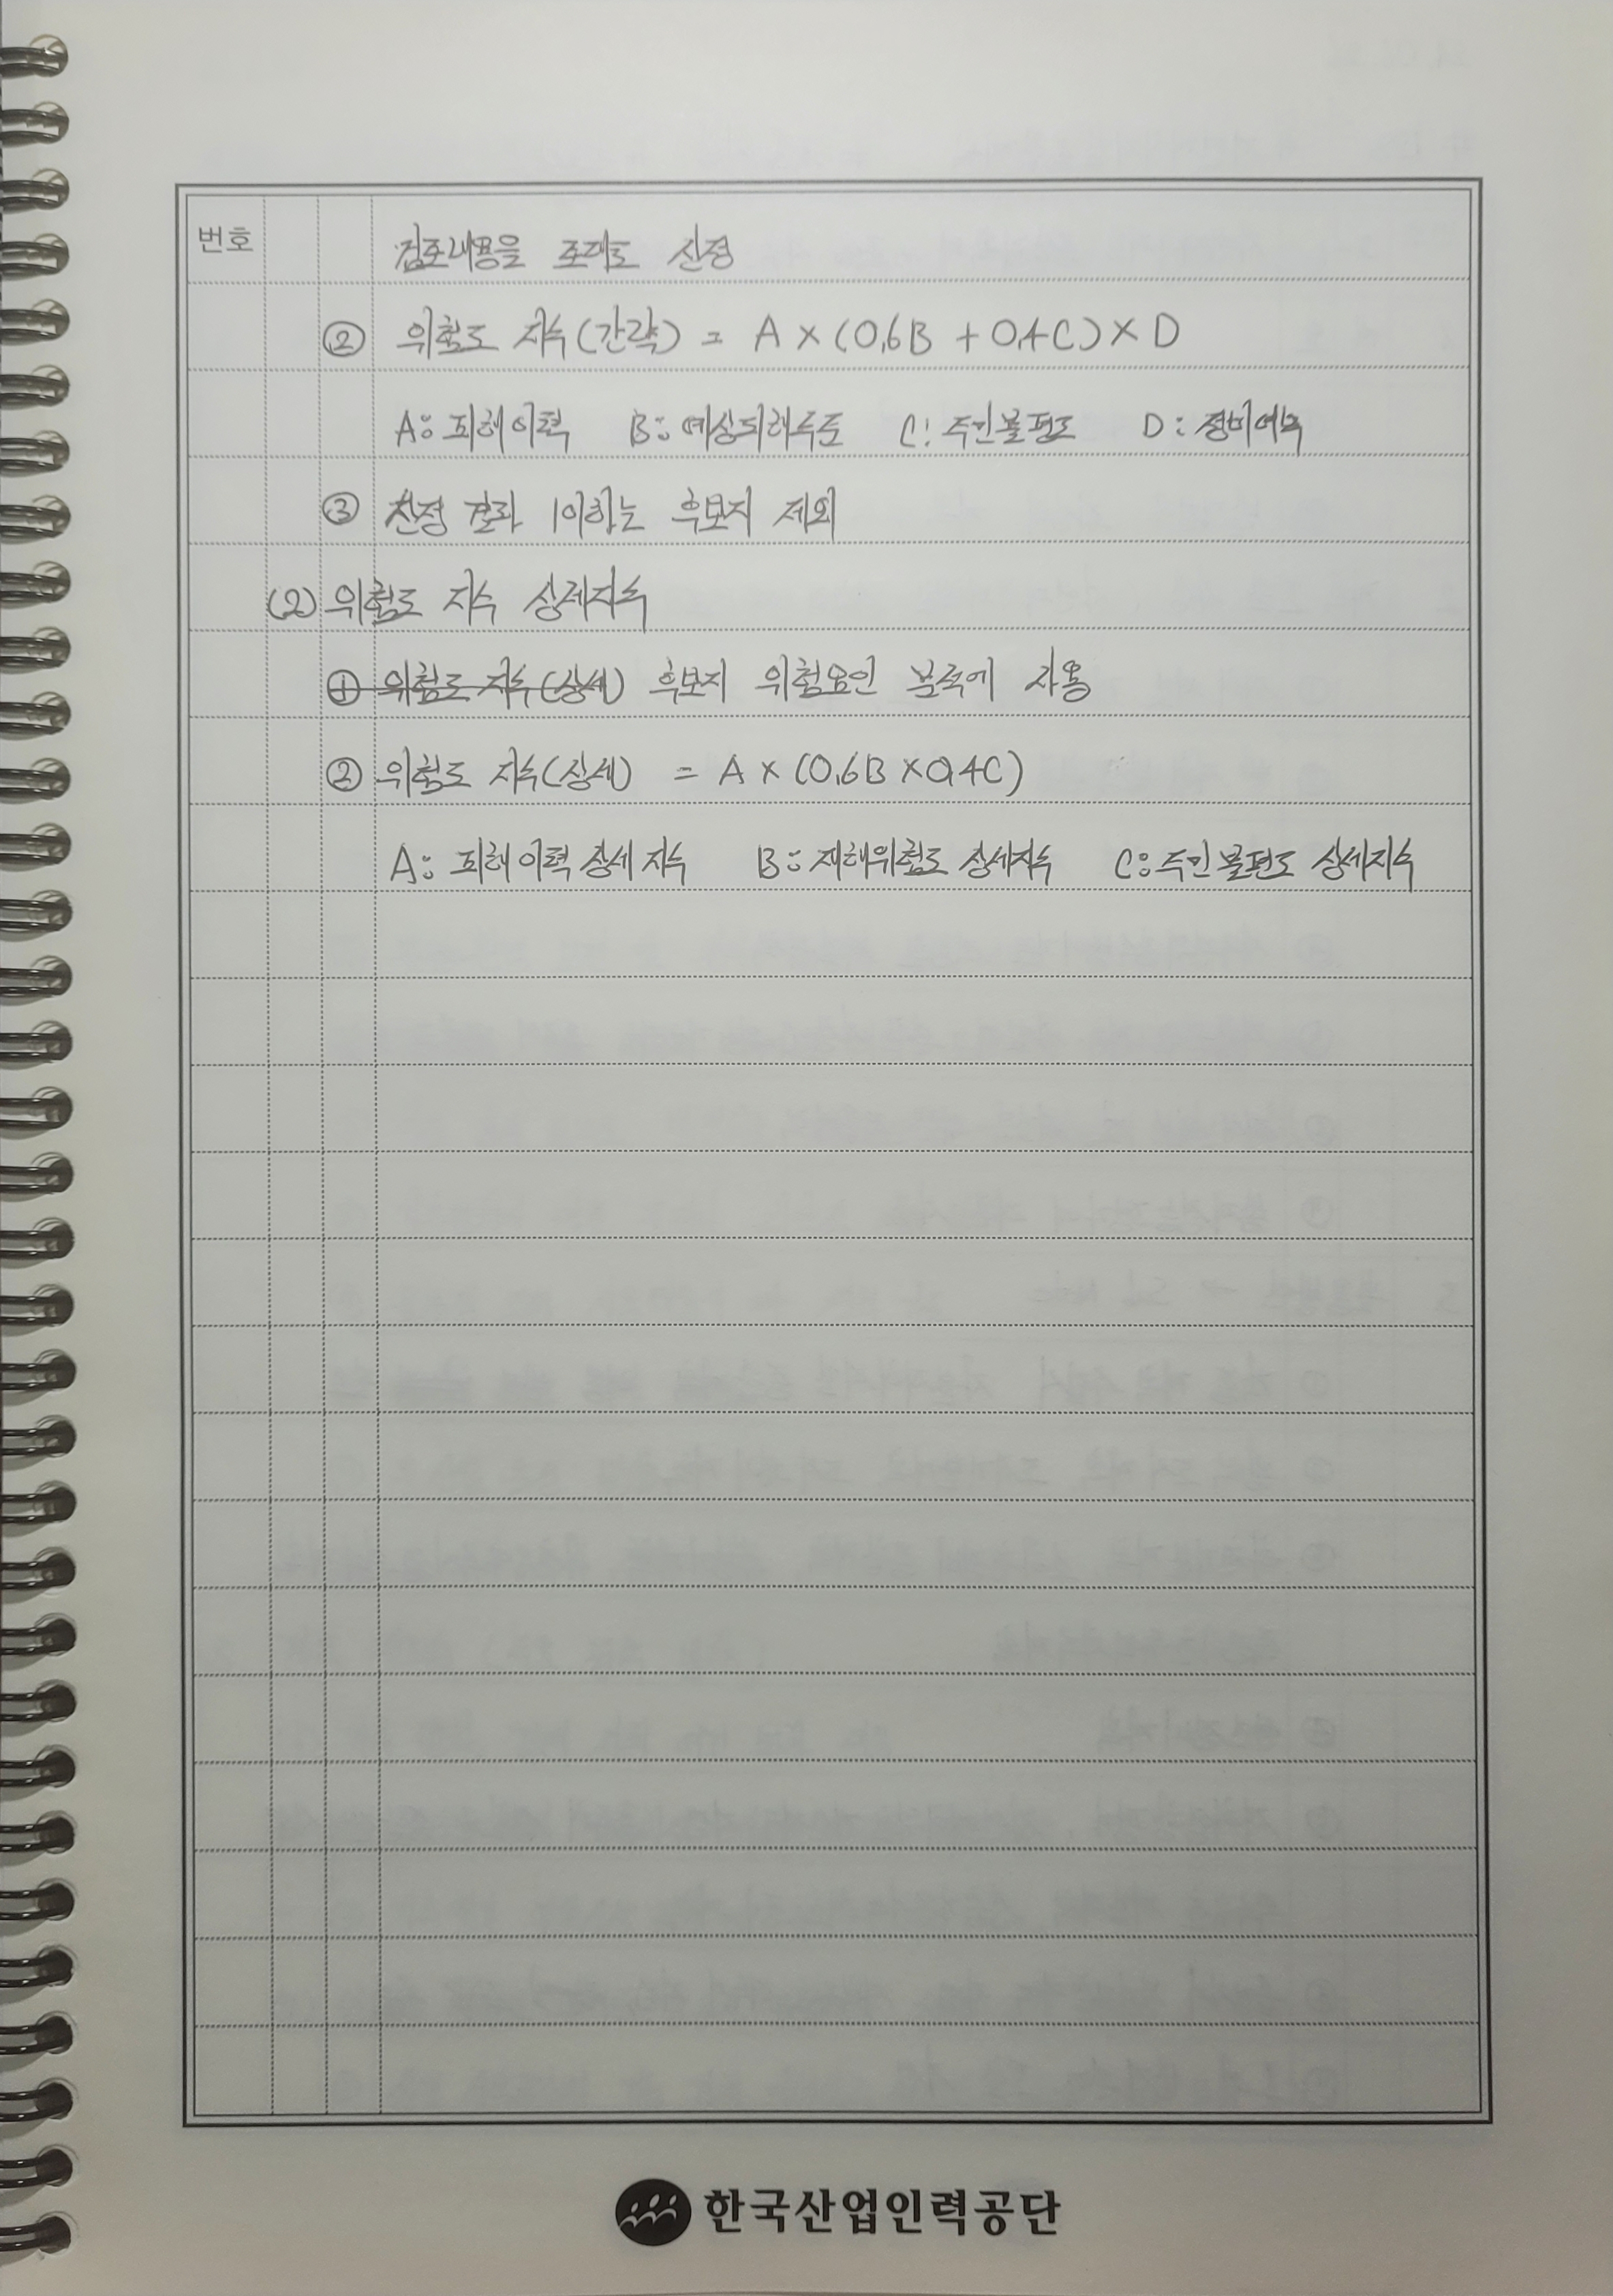 번호 검토내용을 토대로 산정
② 위험도 지수(간략) = A × (0.6B + 0.4C) × D
A: 피해이력 B: 예상피해수준 C: 주민불편도 D: 정비여부
③ 산정 결과 1이하는 후보지 제외
(2) 위험도 지수 상세지수
① 위험도 지수(상세) 후보지 위험요인 분석에 사용
② 위험도 지수(상세) = A × (0.6B × 0.4C)
A: 피해이력 상세지수 B: 재해위험도 상세지수 C: 주민불편도 상세지수
한국산업인력공단